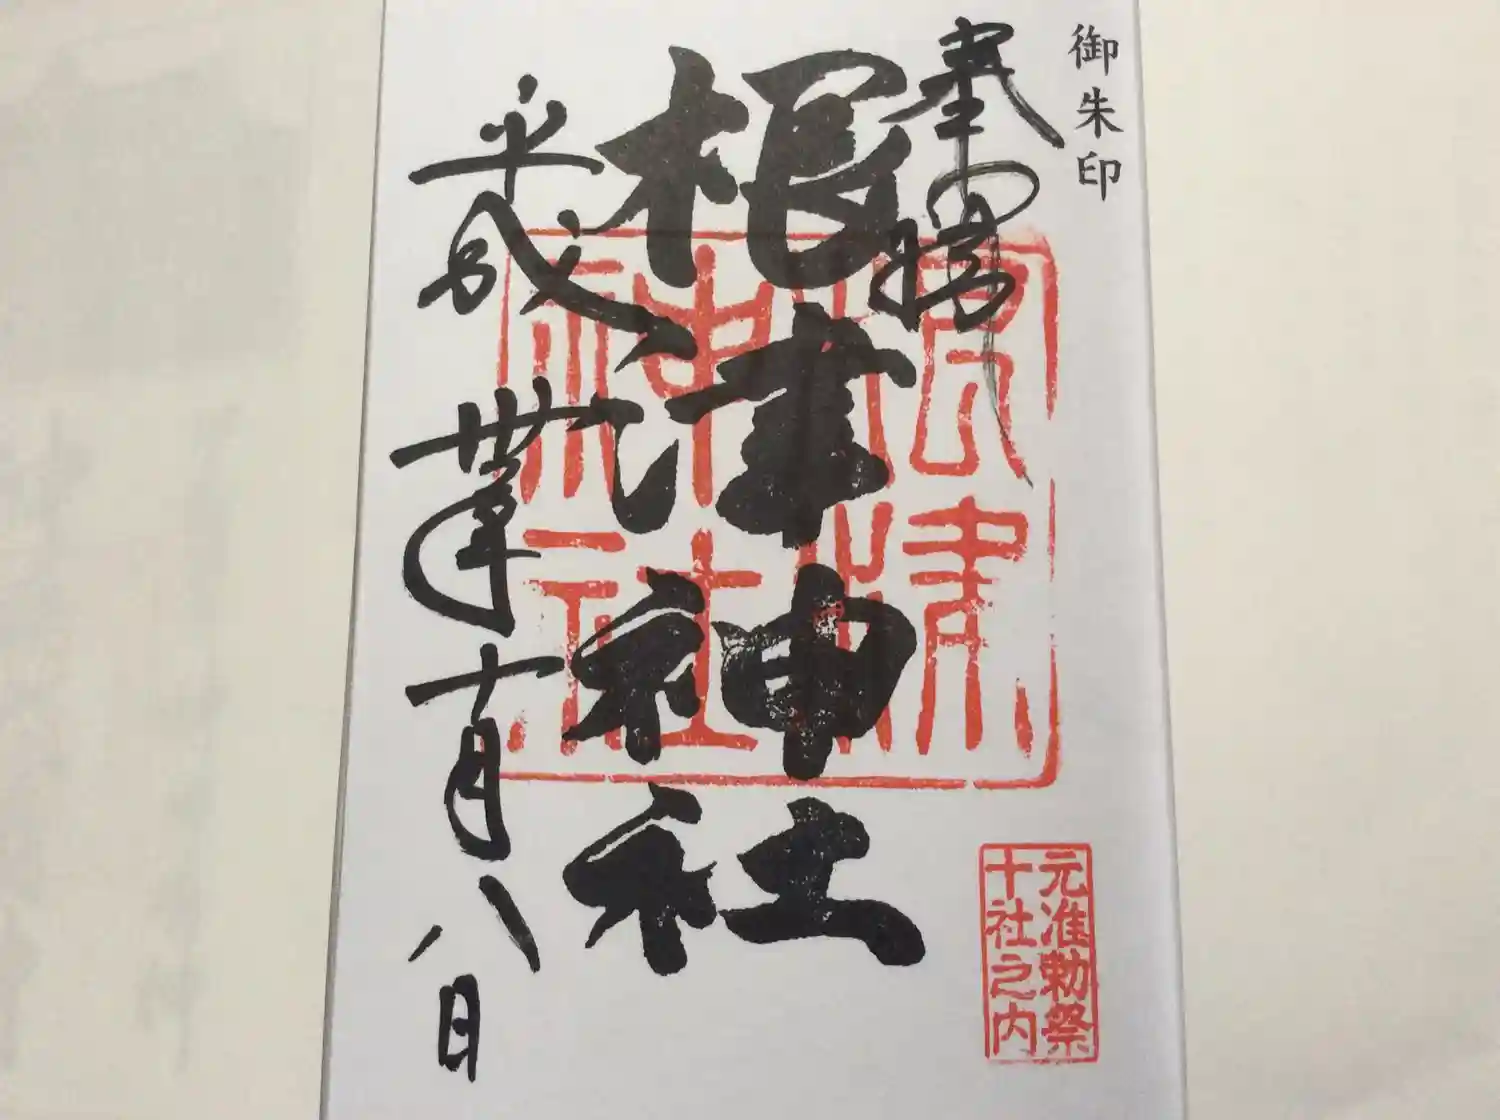 御朱印
奉拝
根津神社
平成丗年十月八日
根津
神社
元准勅祭
十社之内